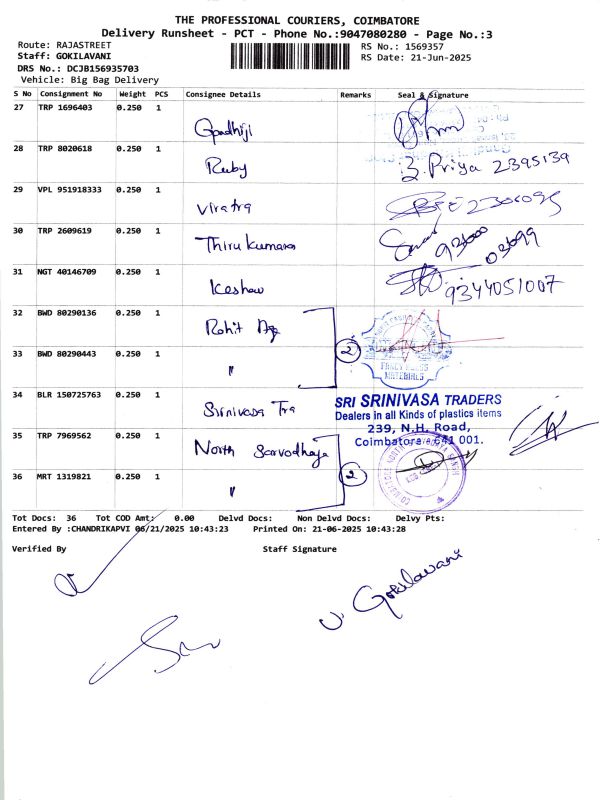 THE PROFESSIONAL COURIERS, COIMBATORE
Delivery Runsheet - PCT - Phone No.:9047080280 - Page No.:3
Route: RAJASTREET
RS No.: 1569357
Staff: GOKILAVANI
RS Date: 21-Jun-2025
DRS No.: DCJB156935703
Vehicle: Big Bag Delivery
S No Consignment No Weight PCS Consignee Details Remarks Seal & Signature
27 TRP 1696403 0.250 1
28 TRP 8020618 0.250 1 Ruby B. Priya 2395139
29 VPL 951918333 0.250 1 Viratra
30 TRP 2609619 0.250 1 Thirukumaran
31 NGT 40146709 0.250 1 Keshav 9344051007
32 BWD 80290136 0.250 1 Rohit
33 BWD 80290443 0.250 1 " 2
FANCY DRESS
MATERIALS
34 BLR 150725763 0.250 1 Srinivasa Tra
SRI SRINIVASA TRADERS
Dealers in all Kinds of plastics items
239, N.H. Road,
Coimbatore - 641 001.
35 TRP 7969562 0.250 1 North Sarvodhaya
36 MRT 1319821 0.250 1 " 2
Tot Docs: 36 Tot COD Amt: 0.00 Delvd Docs: Non Delvd Docs: Delvy Pts:
Entered By :CHANDRIKAPVI 06/21/2025 10:43:23 Printed On: 21-06-2025 10:43:28
Verified By Staff Signature
V. Gokilavani